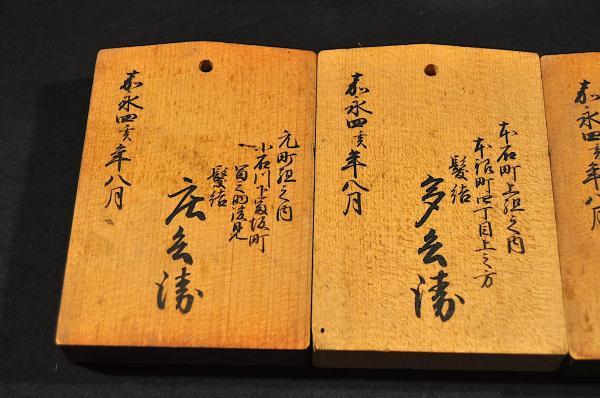 嘉永四亥年八月
本石町上組之内
本銀町四丁目上之方
髪結
多兵衛
嘉永四亥年八月
元町組之内
小石川下富坂町
菊之助後見
髪結
庄兵衛
嘉永四亥年八月